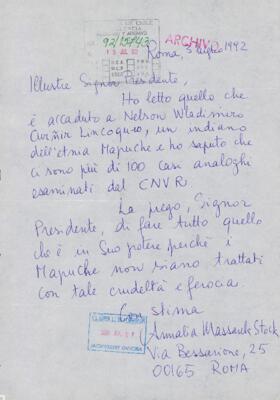 92/15443
13 JUL 92
ARCHIVO
Roma, 5 luglio 1992
Illustre Signor Presidente,
Ho letto quello che
è accaduto a Nelson Wladimiro
Curiñir Lincoqueo, un indiano
dell'etnia Mapuche e ho saputo che
ci sono più di 100 casi analoghi
esaminati dal CNVR.
La prego, Signor
Presidente, di fare tutto quello
che è in Suo potere perchè i
Mapuche non siano trattati
con tale crudeltà e ferocia.
Con stima
Amalia Massank Stock
Via Bessarione, 25
00165 ROMA